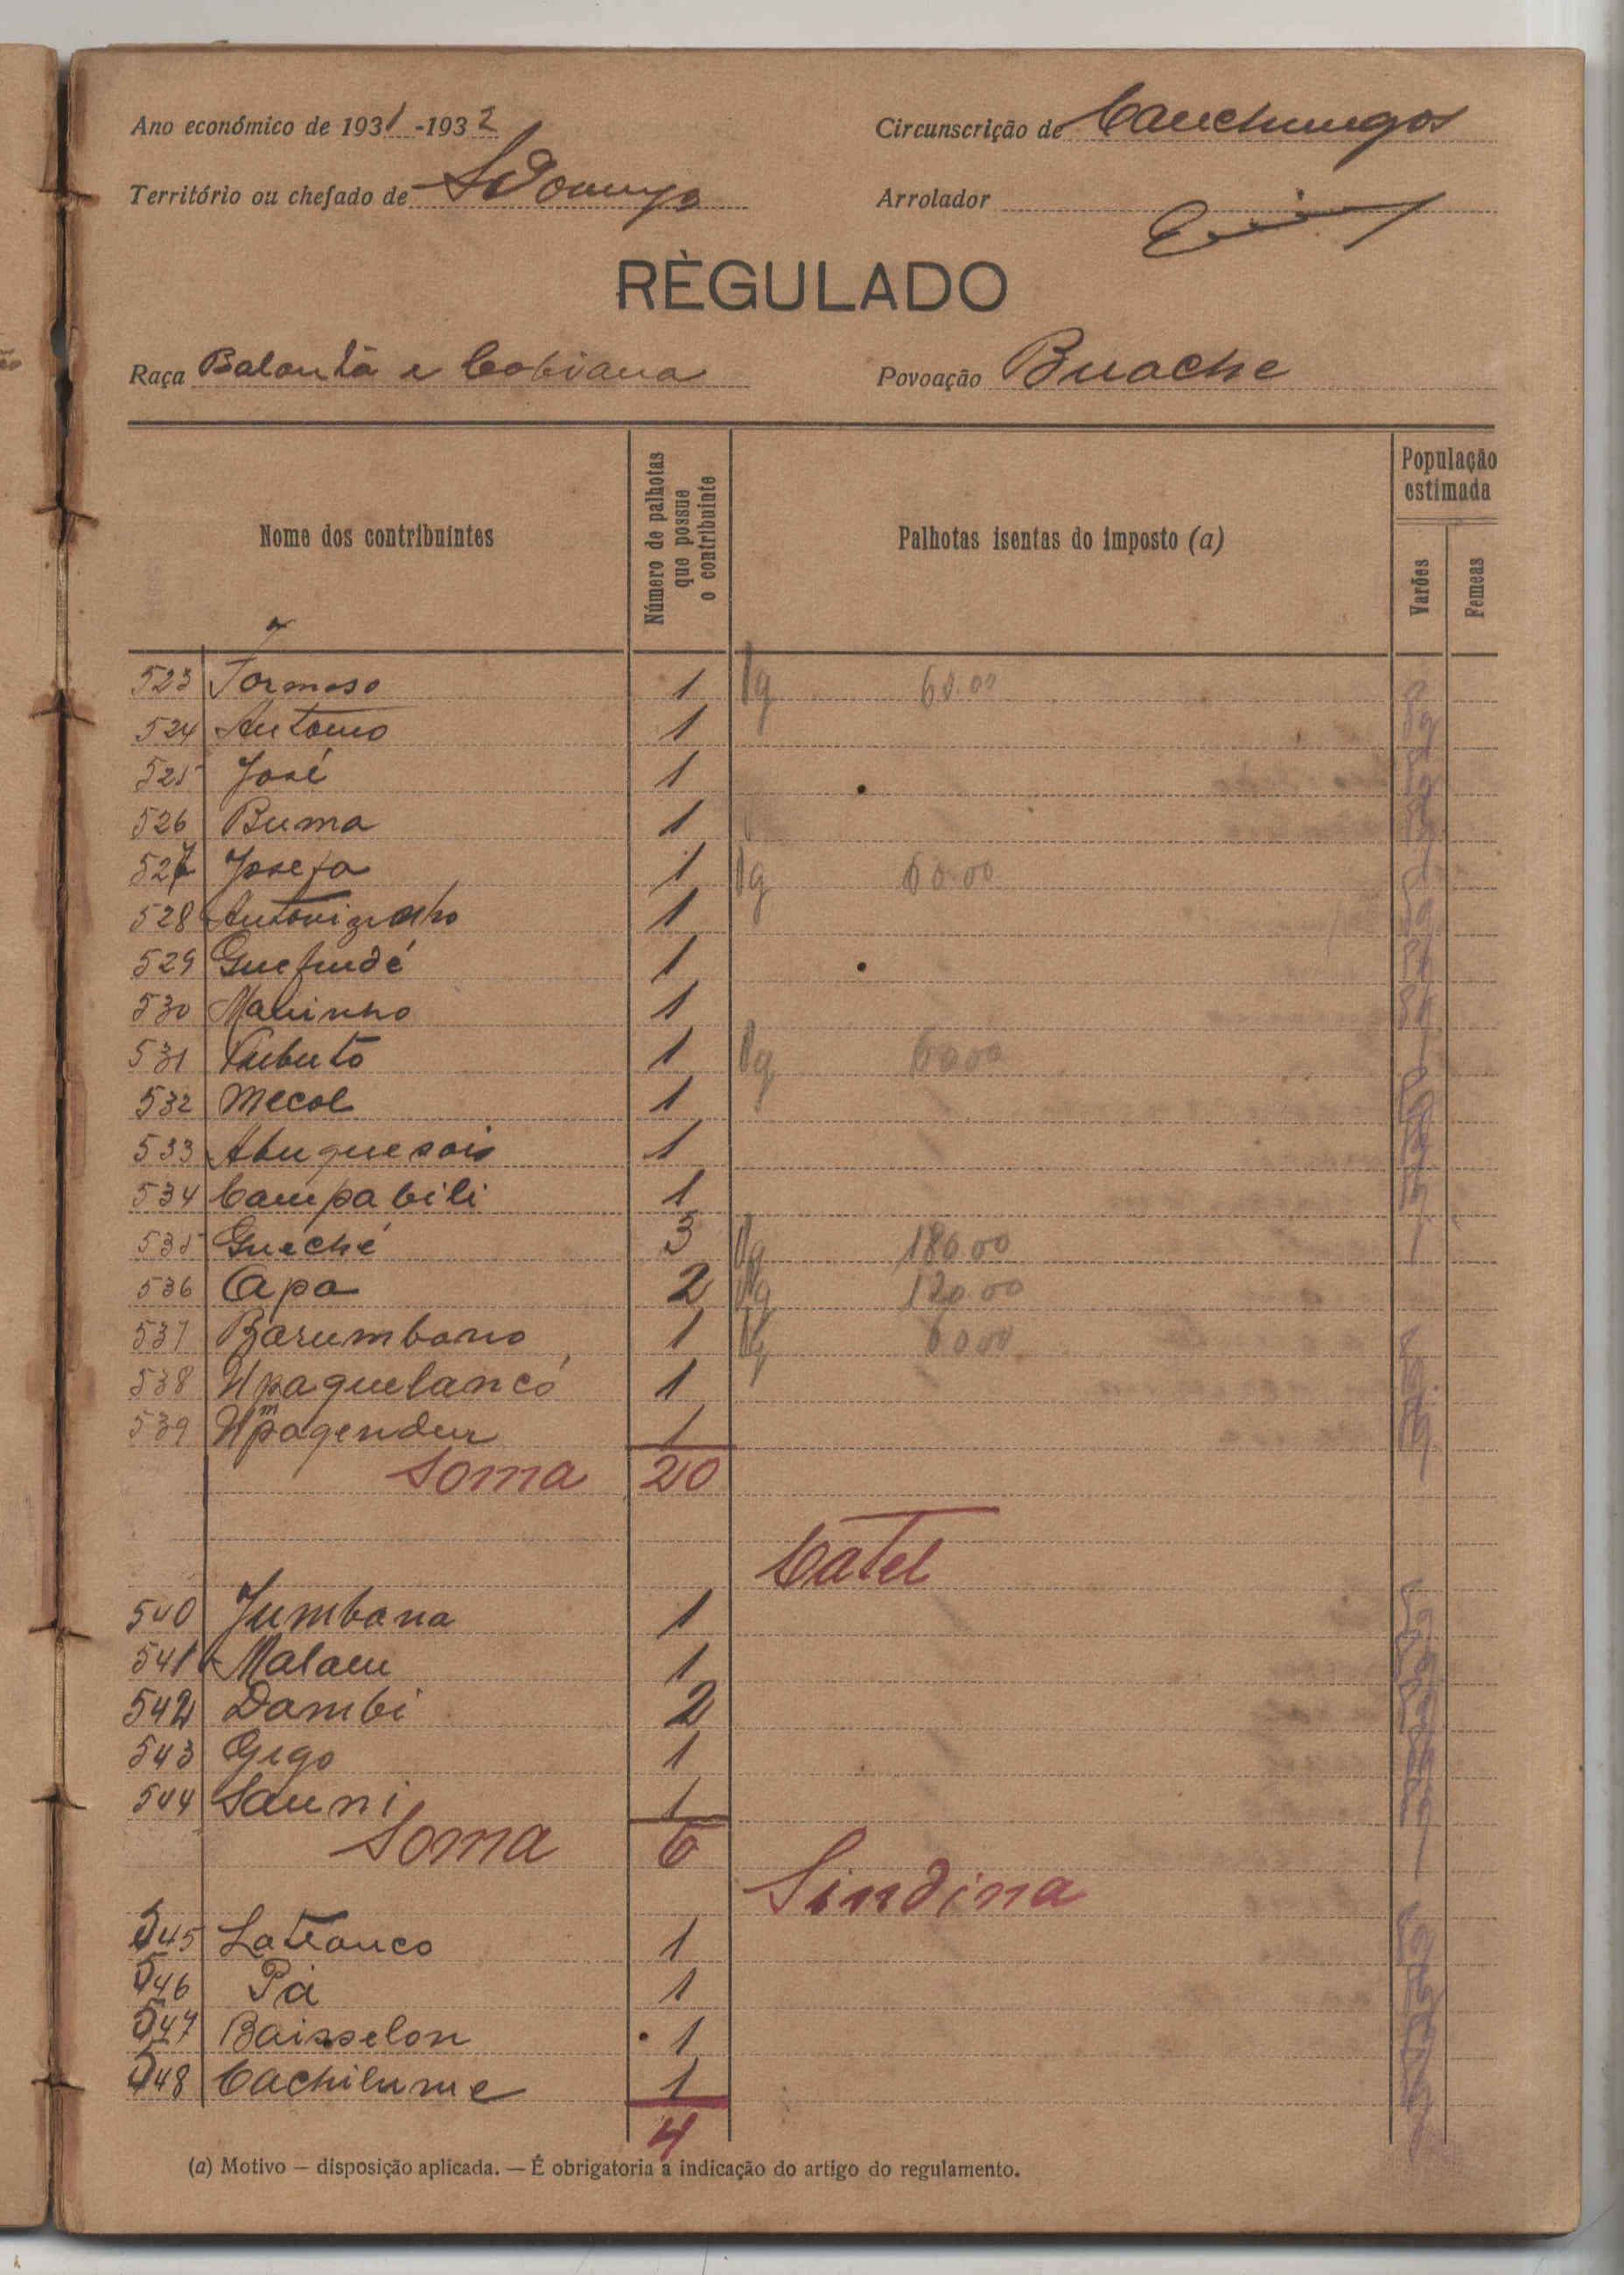 Ano económico de 1931-1932
Circunscrição de Canchungos
Território ou chefado de S. Domingos
Arrolador
RÈGULADO
Raça Balanta e Cobiana
Povoação Buache
Nome dos contribuintes
Número de palhotas que possue o contribuinte
Palhotas isentas do imposto (a)
População estimada
Varões
Femeas
523 Formoso 1 Pg 60.00
524 Antonio 1 Pg
525 José 1 Pg
526 Buma 1 Pg
527 Josefa 1 Pg 60.00
528 1 Pg
529 1 Pg
530 Marinho 1 Pg
531 1 Pg 60.00
532 Mecol 1 Pg
533 Abuquesois 1 Pg
534 Campabili 1 Pg
535 Gueché 3 Pg 180.00
536 Apa 2 Pg 120.00
537 Barumbano 1 Pg 60.00
538 Upaquelancó 1 Pg
539 1 Pg
Soma 20
Catel
540 Jumbana 1 Pg
541 Malam 1 Pg
542 Dambi 2 Pg
543 Gigo 1 Pg
544 Sauni 1 Pg
Soma 6
Sindina
545 Latranco 1 Pg
546 Pá 1 Pg
547 Baisselon 1 Pg
548 Cachilume 1 Pg
4
(a) Motivo — disposição aplicada. — É obrigatoria a indicação do artigo do regulamento.